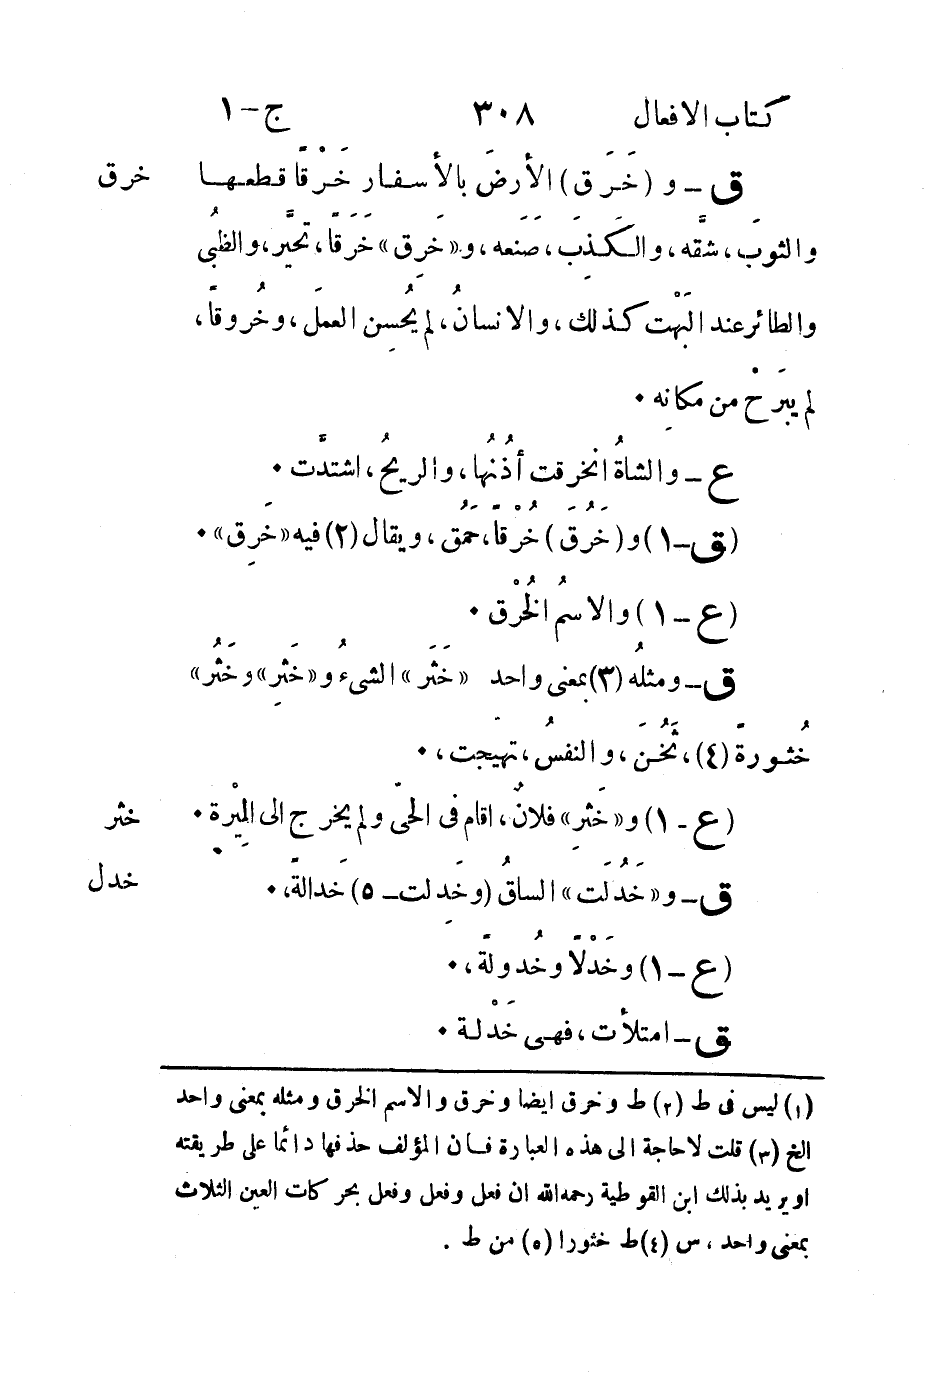 كتاب الافعال ٣٠٨ ج-١
ق - و (خَرَق) الأرضَ بالأسفار خَرْقًا قطعها خرق
والثوبَ، شقَّه، والكَذِبَ، صَنَعه، و«خَرِق» خَرَقًا، تحيَّر، والظبىُ
والطائر عند البَهْت كذلك، والانسانُ، لم يُحسِن العملَ، وخُروقًا،
لم يبرَحْ من مكانِه ٠
ع - والشاةُ انخرقت أذنُها، والريحُ، اشتدَّت ٠
(ق-١) و (خَرُقَ) خُرْقًا، حَمُق، ويقال (٢) فيه «خَرِق» ٠
(ع - ١) والاسمُ الخُرْق ٠
ق - ومثلُه (٣) بمعنى واحد «خَثَر» الشىءُ و«خَثِر» و خَثُر»
خُثورةً (٤)، ثَخُنَ، والنفسُ، تهيّجت، ٠
(ع - ١) و«خَثِر» فلانٌ، اقام فى الحىّ ولم يخرج الى المِيْرة ٠ خثر
ق - و«خَدُلَت» الساقُ (وخَدِلت - ٥) خَدالةً، ٠ خدل
(ع - ١) وخَدْلًا وخُدولةً، ٠
ق - امتلأت، فهى خَدْلة ٠
(١) ليس فى ط (٢) ط وخرق ايضا وخرق والاسم الخرق ومثله بمعنى واحد
الخ (٣) قلت لاحاجة الى هذه العبارة فان المؤلف حذفها دائما على طريقته
او يريد بذلك ابن القوطية رحمه الله ان فعل وفعل وفعل بحركات العين الثلاث
بمعنى واحد، س (٤) ط خثورا (٥) من ط .